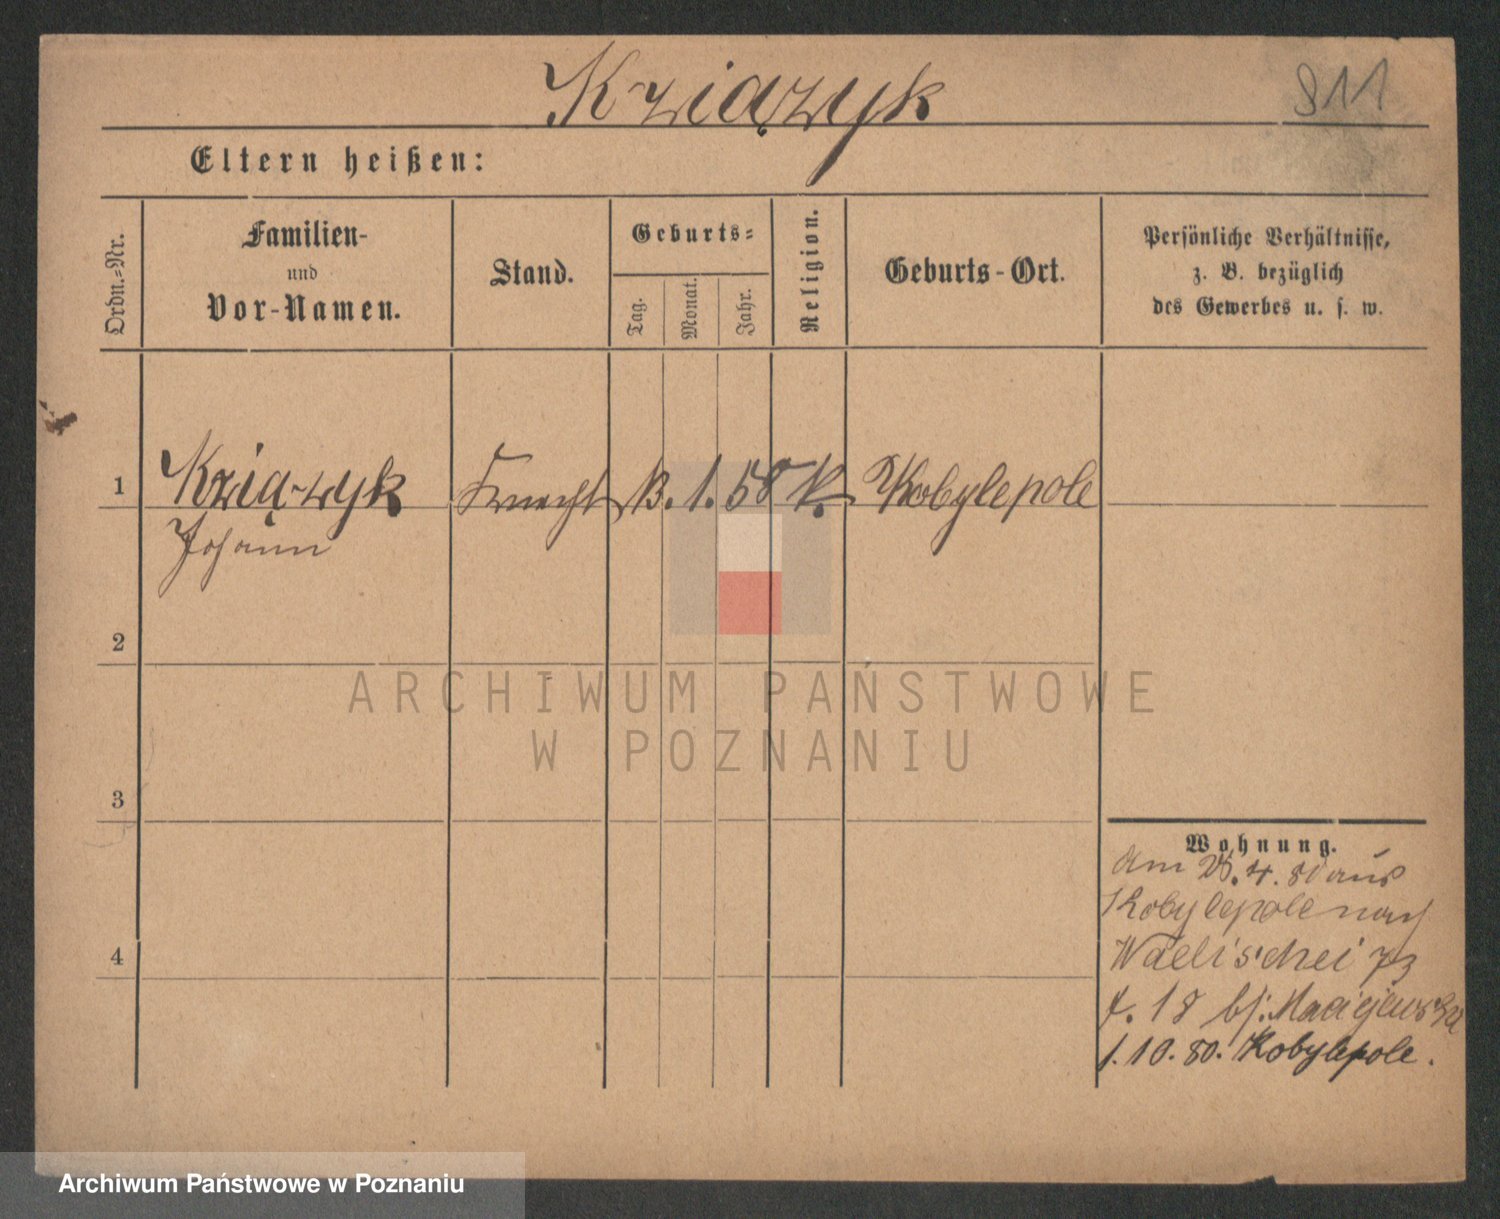 Krziązyk
811
Eltern heißen:
Ordn.-Nr.
Familien-
und
Vor-Namen.
Stand.
Geburts-
Tag.
Monat.
Jahr.
Religion.
Geburts-Ort.
Persönliche Verhältnisse,
z. B. bezüglich
des Gewerbes u. s. w.
1
Knecht
1. 58 K. Kobylepole
Johann
2
ARCHIWUM PAŃSTWOWE
W POZNANIU
3
Wohnung.
Am 4. 80 aus
Kobylepole nach
Wallischei 73
18 bei Maciejewska
1. 10. 80. Kobylepole.
4
Archiwum Państwowe w Poznaniu